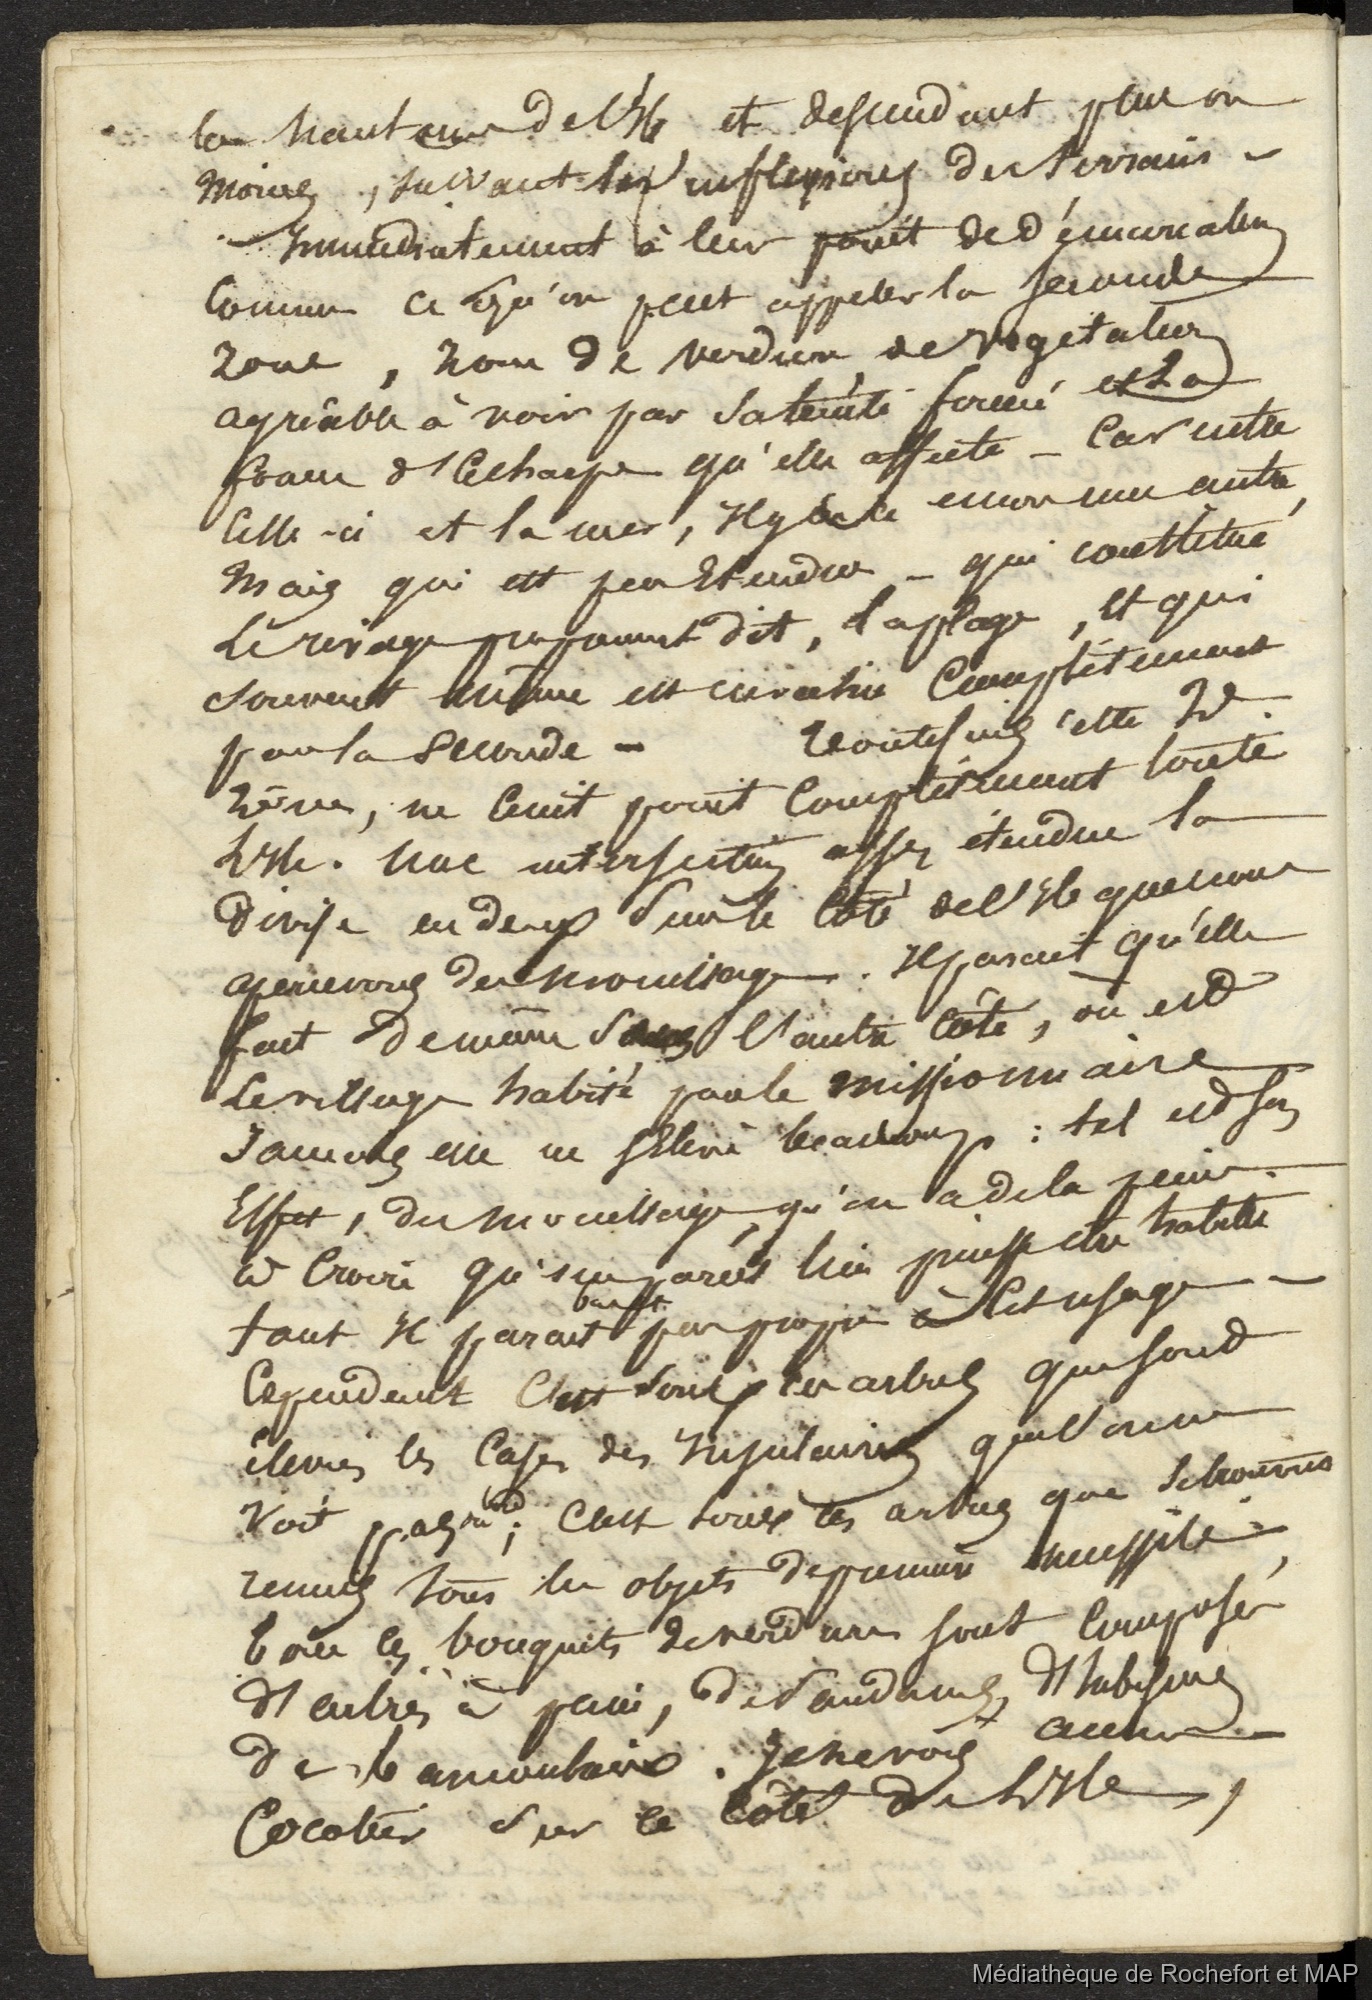 les hauteurs de l'Isle et descendant plus ou
moins, suivant les inflexions des terrains -
- Immediatement à leur point de démarcation
Commence ce qu'on peut appeler la seconde
Zone, Zone de verdure, de végétation
agréable à voir par sa teinte foncé et la
forme d'Echarpe qu'elle affecte - Car entre
Celle-ci et la mer, Il y a encore une autre,
Mais qui est peu Etendue - qui constitue
Le rivage proprement dit, la plage, Et qui
souvent même est envahie Complètement
par la Seconde - Toutefois cette 2e.
Zône, ne Ceint point Complètement toute
L'Isle. Une intersection assez étendue la
Divise en deux sur le Côté de l'Isle que nous
apercevons du Mouillage. Il parait qu'elle
fait de même l'autre Côté, où est
Le village habité par le missionnaire
Jamais elle ne s'Eleve beaucoup : tel est son
Effet, du Mouillage, qu'on a de la peine
à Croire qu'un pareil lieu puisse être habité
tant Il parait peu propre à Cet usage -
Cependant C'est sous ces arbres que sont
élevées les Cases des Insulaires que l'on ne
Voit pas ; C'est sous ces arbres que se trouvent
reunis tous les objets de premiere necessité -
tous ces bouquets de verdure sont Composés
d'arbres à pain, de Pandanus, d'hibiscus
de . Je ne vois aucun
Cocotier sur ce Côté de L'Isle,
Médiathèque de Rochefort et MAP